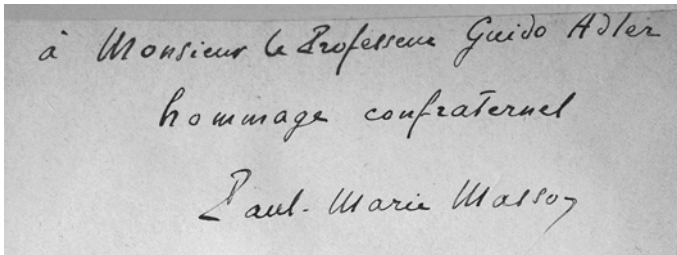 à Monsieur le Professeur Guido Adler
hommage confraternel
Paul-Marie Masson